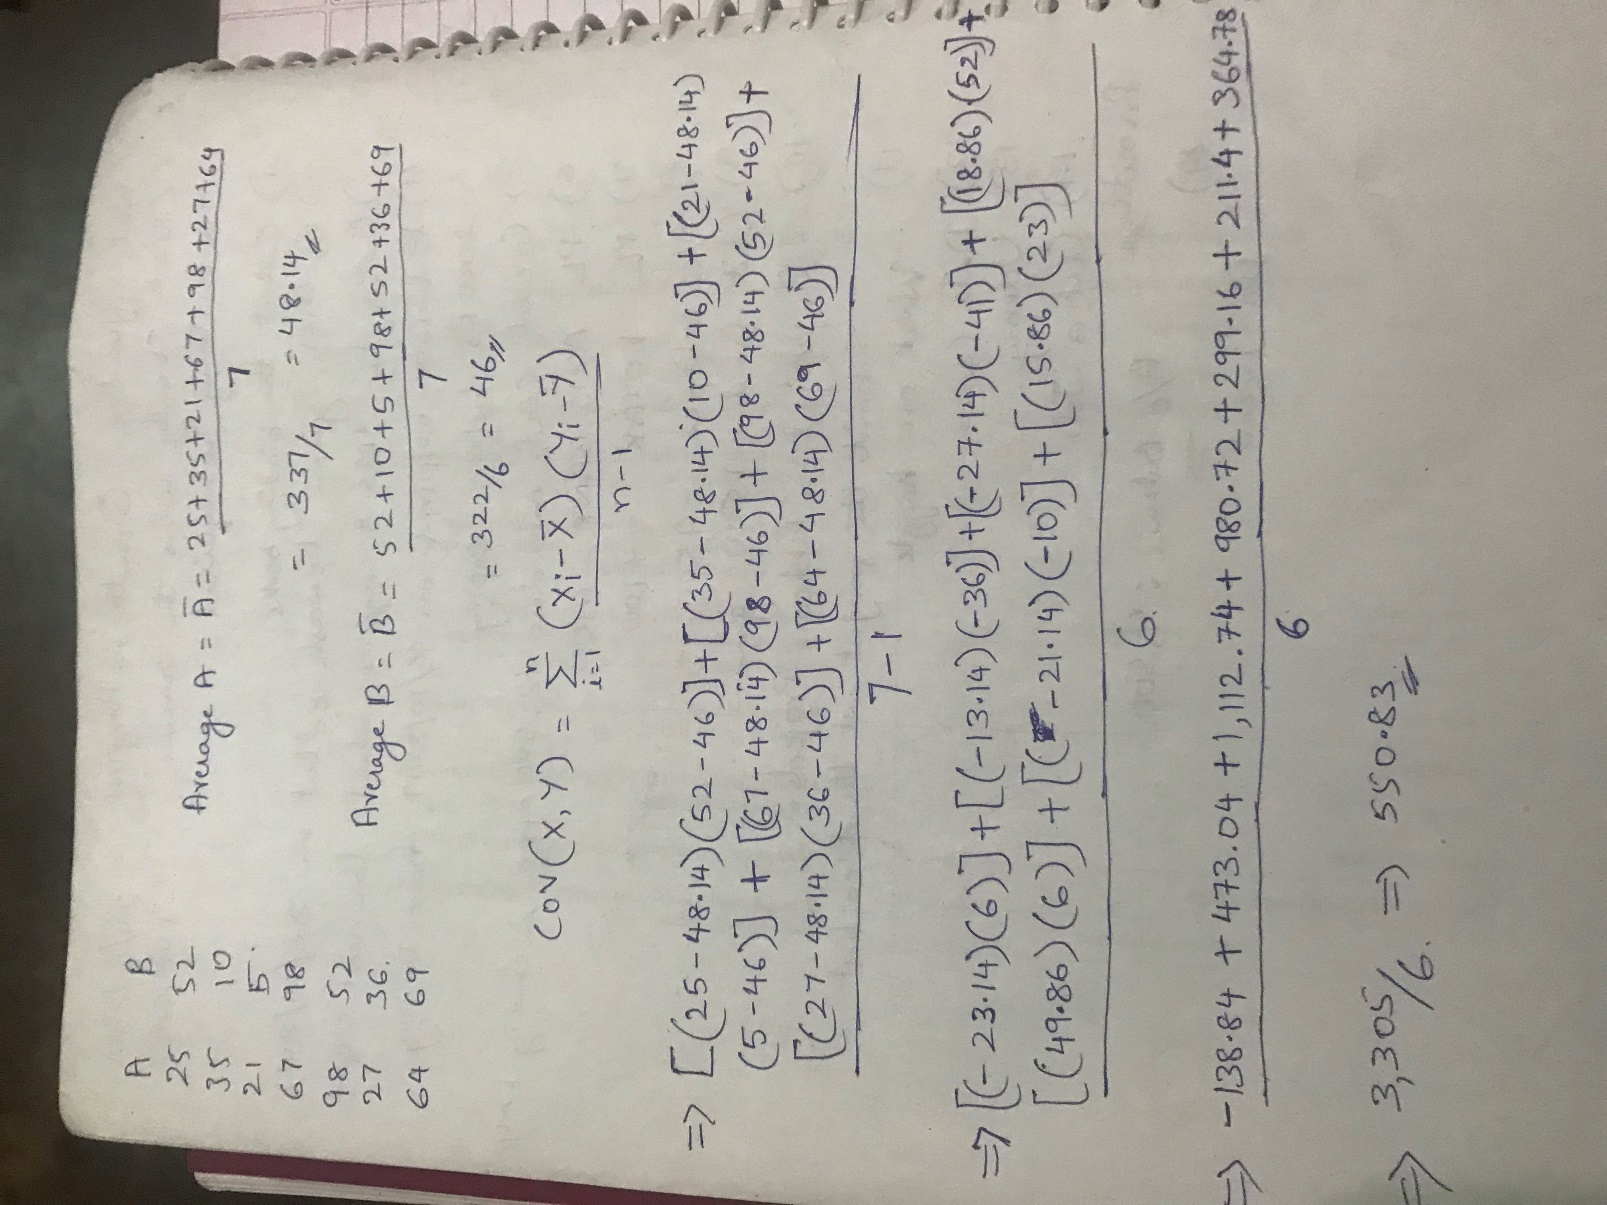 A B
25 52
35 10
21 5.
67 98
98 52
27 36.
64 69
Average A = A̅ = 25+35+21+67+98+27+64
7
= 337/7 = 48.14
Average B = B̅ = 52+10+5+98+52+36+69
7
= 322/6 = 46
COV(X,Y) = n Σ i=1 (Xi-X̅)(Yi-Y̅)
n-1
=> [(25-48.14)(52-46)]+[(35-48.14)(10-46)]+[(21-48.14)
(5-46)] + [(67-48.14)(98-46)]+[(98-48.14)(52-46)]+
[(27-48.14)(36-46)]+[(64-48.14)(69-46)]
7-1
=> [(-23.14)(6)]+[(-13.14)(-36)]+[(-27.14)(-41)]+[(18.86)(52)]+
[(49.86)(6)]+[(-21.14)(-10)]+[(15.86)(23)]
6.
=> -138.84 + 473.04 + 1,112.74 + 980.72 + 299.16 + 211.4 + 364.78
6
=> 3,305/6. => 550.83